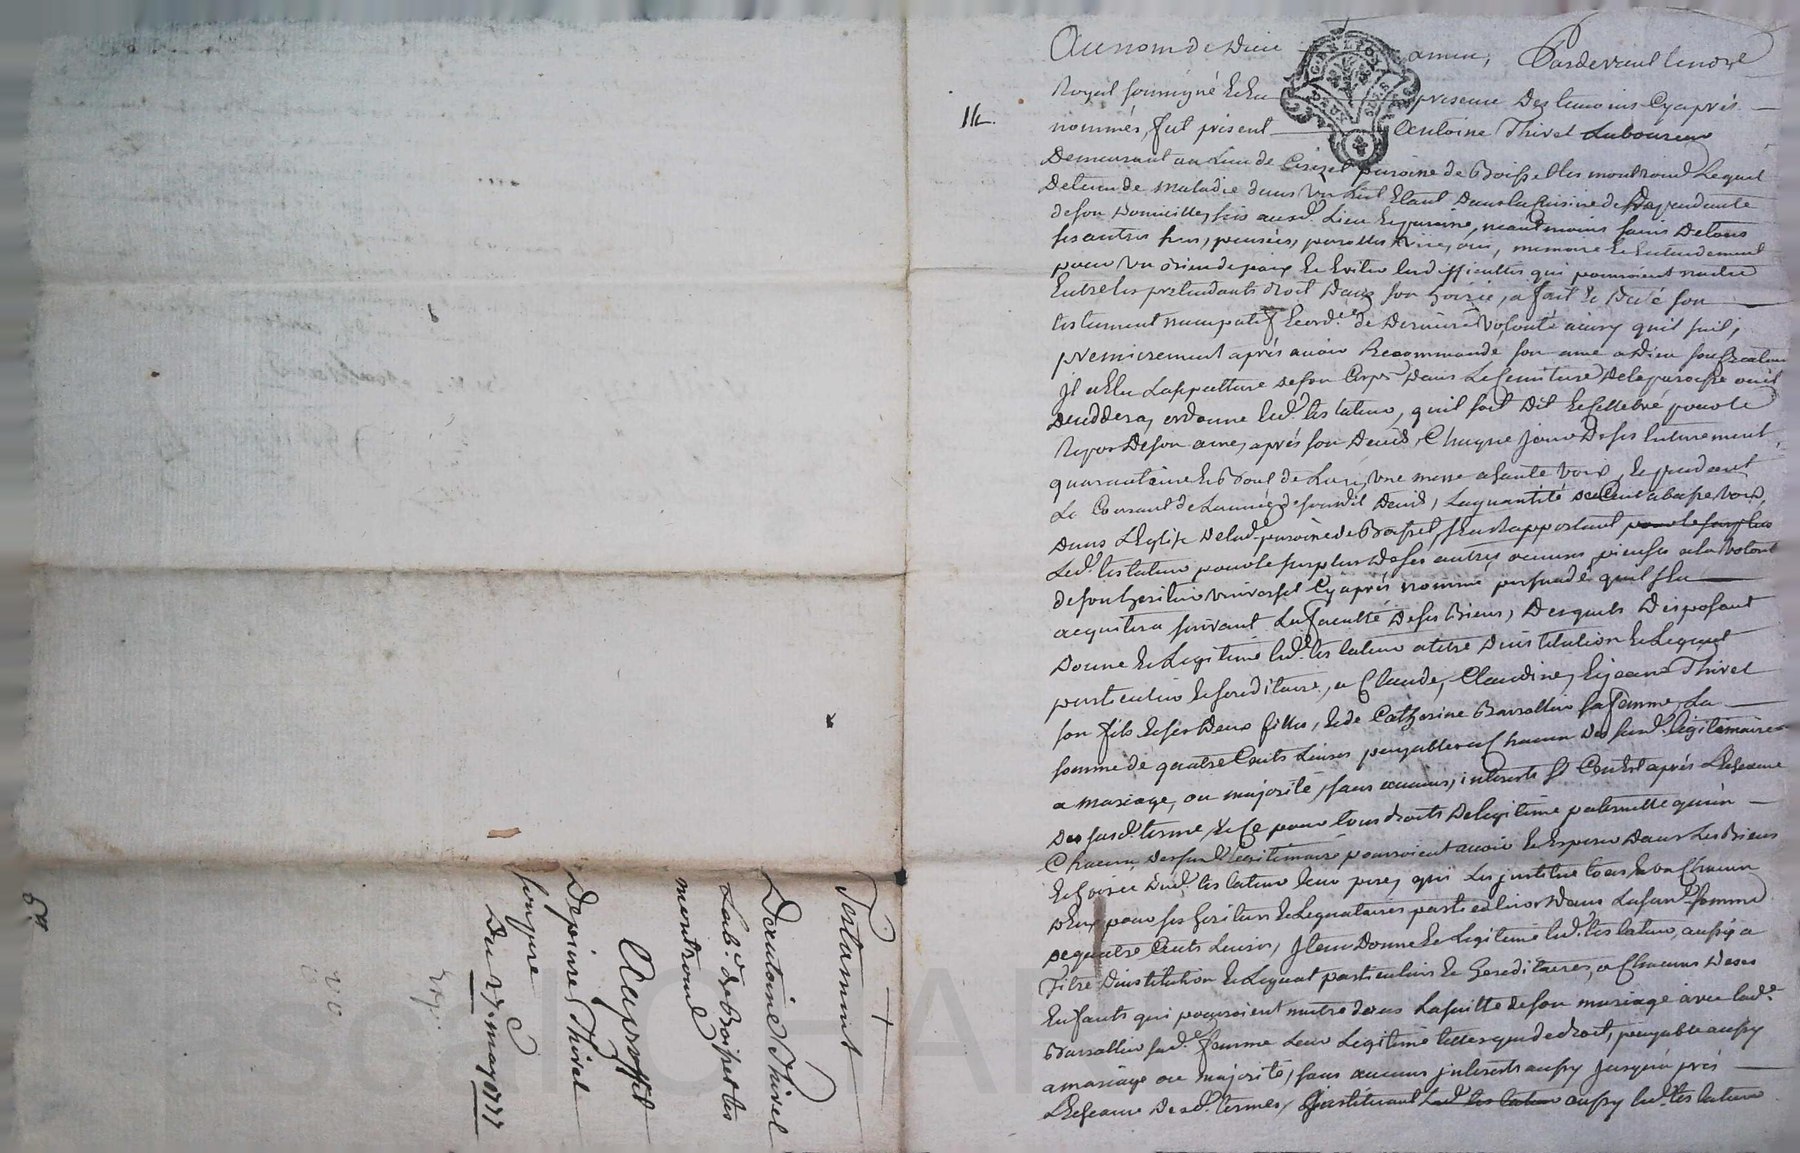 Au nom de Dieu amen, Pardevant le no.re
Royal soussigné et en presence des temoins cy après
nommés, fut présent Antoine Thivel laboureur
demeurant au lieu de paroisse de Boisset les montrond lequel
detenu de maladie dans un lict étant dans la cuisine dépendante
de son domicille, sis aud. lieu et paroisse, neantmoins sain de tous
ses autres sens, pensées, parolles, vue, oui, memoire et entendement
pour un bien de paix et eviter les difficultés qui pourroient naitre
entre les pretendants droit dans son hoirie, a fait et dicté son
testament nuncupatif et ord.ce de derniere volonté ainsy quil suit,
premierement après avoir recommandé son ame a Dieu son créateur
Il a elu la sepulture de son corps dans le cimetiere de la paroisse ou il
decedera, ordonne led. testateur, quil soit dit et cellebré pour le
repos de son ame, après son deces, chaque jour de ses enterrement,
quarantaine et bout de l'an, une messe a haute voix, et pendant
le courant de l'année de sondit deces, la quantité de a basse voix,
dans l'Eglise de lad. paroisse de Boisset, sen rapportant pour le surplus
led. testateur pour le surplus de ses autres œuvres pieuses a la volonté
de son heritier universel cy après nommé persuadé quil sen
acquitera suivant la faculté de ses biens, desquels disposant
donne et legitime led. testateur a titre d'institution et legat
particulier et hereditaire, a Claude, Claudine, et jeanne Thivel
son fils et ses deux filles, et de Catherine Barrallier sa femme, la
somme de quatre cents livres payable a chacun des susd. legitimaires
a mariage, ou majorité, sans aucuns interests si ce n'est après l'echeance
des susd. terme, et ce pour tous droits de legitime paternelle qu'un
chacun des susd. legitimaire pourroient avoir et esperer dans les biens
et hoirie dud. testateur leur pere, qui les institue tous et un chacun
deux pour ses heritiers et legataires particuliers dans la susd. somme
de quatre cents livres, Item donne et legitime led. testateur, aussy a
titre d'institution et legat particulier et hereditaires, a chacuns de ses
enfants qui pourroient naitre dans la suitte de son mariage avec lad.e
Barrallier sad. femme leur legitime telle que de droit, payable aussy
a mariage ou majorité, sans aucuns interests aussy jusqu'a près
l'echeance desd. termes, Instituant led. testateur aussy led. testateur
Testament
D'antoine Thivel
Lab.r de Boisset les
montrond
Au proffit
De pierre Thivel
son pere
Du 27 may 1777